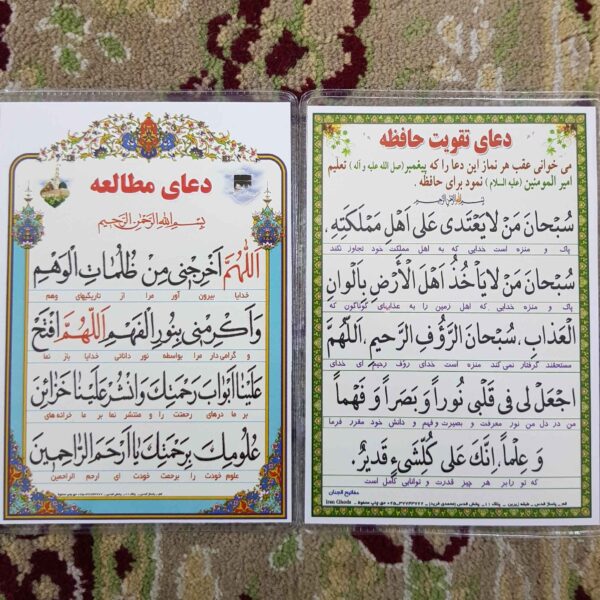 دعای مطالعه
بِسْمِ اللهِ الرَّحْمنِ الرَّحیمِ
اَللّهُمَّ اَخْرِجْنی مِنْ ظُلُماتِ الْوَهْمِ
خدایا بیرون آور مرا از تاریکیهای وهم
وَ اَکْرِمْنی بِنُورِ الْفَهْمِ اَللّهُمَّ افْتَحْ
و گرامی دار مرا بواسطه نور دانائی خدایا باز نما
عَلَیْنا اَبْوابَ رَحْمَتِکَ وَانْشُرْ عَلَیْنا خَزائِنَ
بر ما درهای رحمتت را و منتشر نما بر ما خزانه های
عُلُومِکَ بِرَحْمَتِکَ یا اَرْحَمَ الرّاحِمینَ
علوم خودت را برحمتت خودت ای ارحم الراحمین
دعای تقویت حافظه
می خوانی عقب هر نماز این دعا را که پیغمبر (صل الله علیه و آله) تعلیم
امیر المومنین (علیه السلام) نمود برای حافظه .
سُبْحانَ مَنْ لا یَعْتَدی عَلی اَهْلِ مَمْلَکَتِهِ.
پاک و منزه است خدایی که به اهل مملکت خود تجاوز نکند
سُبْحانَ مَنْ لا یَاْخُذُ اَهْلَ الْاَرْضِ بِاَلْوانِ
پاک و منزه است خدایی که اهل زمین را به عذابهای گوناگون که
الْعَذابِ. سُبْحانَ الرَّؤُفِ الرَّحیمِ. اَللّهُمَّ
مستحقند گرفتار نمی کند منزه است خدای رؤف رحیم ای خدای
اجْعَلْ لی فی قَلْبی نُوراً وَ بَصَراً وَ فَهْماً
من در دل من نور معرفت و بصیرت و فهم و دانش خود مقرر فرما
وَ عِلْماً. اِنَّکَ عَلی کُلِّ شَیْءٍ قَدیرٌ.
که تو را بر هر چیز قدرت و توانایی کامل است
مفاتیح الجنان